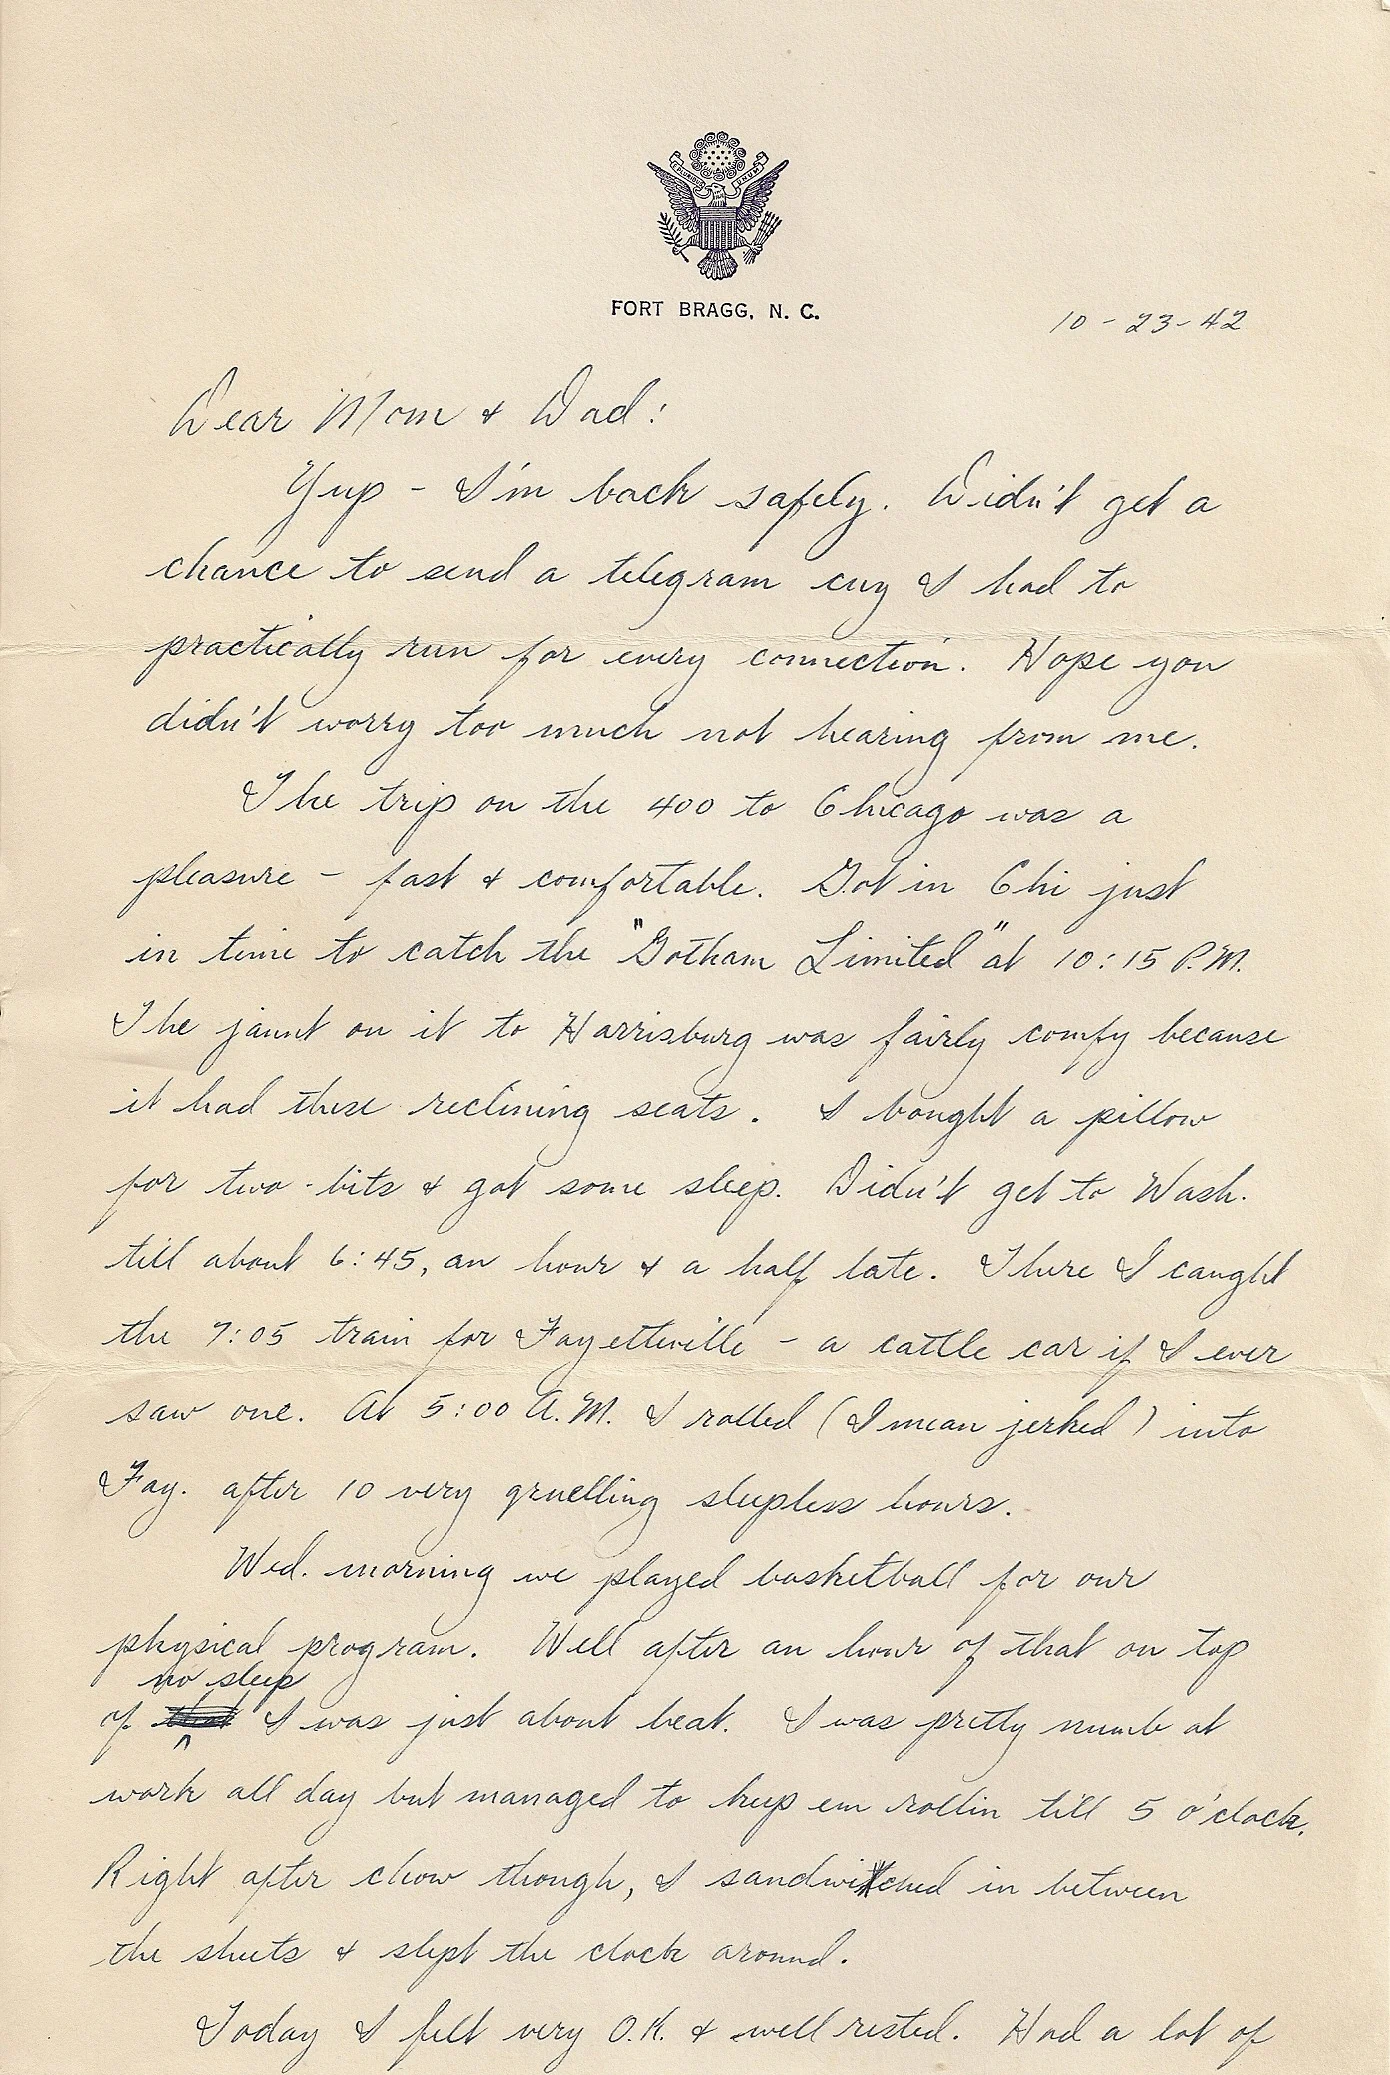 FORT BRAGG, N. C.
10-23-42
Dear Mom & Dad:
Yup - I'm back safely. Didn't get a
chance to send a telegram cuz I had to
practically run for every connection. Hope you
didn't worry too much not hearing from me.
The trip on the 400 to Chicago was a
pleasure - fast & comfortable. Got in Chi just
in time to catch the "Gotham Limited" at 10:15 P.M.
The jaunt on it to Harrisburg was fairly comfy because
it had these reclining seats. I bought a pillow
for two-bits & got some sleep. Didn't get to Wash.
till about 6:45, an hour & a half late. There I caught
the 7:05 train for Fayetteville - a cattle car if I ever
saw one. At 5:00 A.M. I rolled (I mean jerked) into
Fay. after 10 very gruelling sleepless hours.
Wed. morning we played basketball for our
physical program. Well after an hour of that on top
no sleep
of that I was just about beat. I was pretty numb at
work all day but managed to keep em rollin till 5 o'clock.
Right after chow though, I sandwiched in between
the sheets & slept the clock around.
Today I felt very O.K. & well rested. Had a lot of